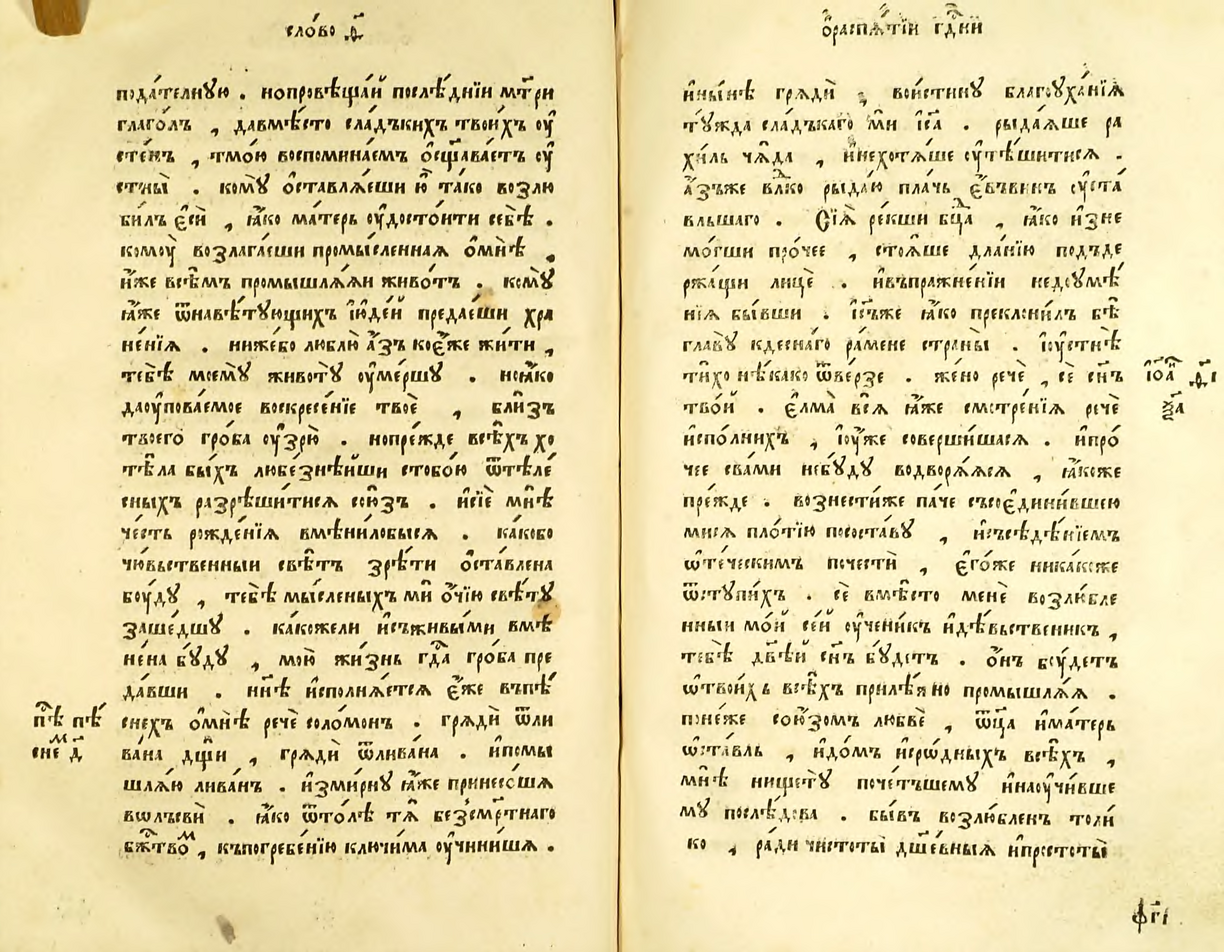 сло́во д҃
пода́телнꙋю . нопровѣща́й послѣ́днїи мт҃ри
глаго́лъ , давмѣ́сто сла́дъкихъ твои́хъ оу҆
сте́нъ , тмо́ю воспомина́емъ ѡ҆сщава́етъ оу҆
стны̀ . комꙋ̀ ѡ҆ставлѧ́еши ю҆̀ та́ко возлю
би́лъ є҆сѝ , ꙗ҆́ко ма́терь оу҆досто́ити себѣ̀ .
комоу̀ возлага́еши промы́сленнаѧ ѡ҆мнѣ̀ ,
и҆́же всѣ́мъ промышлѧ́ѧи живо́тъ . комꙋ̀
ꙗ҆́же ѿнавѣ́тꙋющихъ і҆ꙋде́й предае́ши хра
не́нїѧ . ниже́бо люблю̀ а҆́зъ коє҆́же жи́ти ,
тебѣ̀ моемꙋ̀ животꙋ̀ оу҆ме́ршꙋ . ноꙗ҆́ко
даоу҆пова́емое воскресе́нїе твоѐ , бли́зъ
твоего̀ гро́ба оу҆зрю̀ . нопре́жде всѣ́хъ хо
тѣ́ла бы́хъ любе́знѣйши стобо́ю ѿтѣле́
сныхъ разрѣши́тисѧ сою́зъ . и҆сїѐ мнѣ̀
че́сть рожде́нїѧ вмѣни́лобысѧ . ка́кобо
чю́вьственныи свѣ́тъ зрѣ́ти ѡ҆ста́влена
боу́дꙋ , тебѣ̀ мы́сленыхъ мѝ ѻ҆́чїю свѣ́тꙋ
заше́дшꙋ . ка́кожели и҆съживы́ми вмѣ
не́на бꙋ́дꙋ , мою̀ жи́знь гд҇а гро́ба пре
да́вши . нн҃ѣ и҆сполнѧ́етсѧ є҆́же въпѣ́
снехъ ѡ҆мнѣ̀ речѐ соломо́нъ . грѧдѝ ѿли
ва́на дщи , грѧдѝ ѿлива́на . и҆помы
шлѧ́ю лива́нъ . и҆зми́рнꙋ ꙗ҆́же принесо́шѧ
вѡлъсвѝ . ꙗ҆́ко ѿто́лѣ тѧ̀ безсме́ртнаго
бж҇тво́м , къпогребе́нїю ключи́ма оу҆чини́шѧ .
пѣ҇ пѣ́
сне́м д҃
ѡ҆распѧ́тїи гд҇ни
и҆ны́нѣ грѧдѝ , вои́стинꙋ благоꙋха́нїѧ
тꙋ́жда сла́дъкаго мѝ і҆с҃а . рыда́ѧше ра
хи́ль чѧ́да , и҆нехотѧ́ше оу҆тѣ́шитисѧ .
а҆́зъже влⷣко рыда́ю пла́чь є҆́въвинъ оу҆ста́
вльшаго . Сїѧ̀ ре́кши бц҃а , ꙗ҆́ко и҆зне
мо́гши про́чее , стоѧ́ше дла́нїю подъде
ржа́щи лицѐ . и҆въпражне́нїи недоꙋмѣ́
нїѧ бы́вши . і҆с҃ъже ꙗ҆́ко преклони́лъ бѣ̀
главꙋ̀ кдесна́го ра́мене страны̀ . і҆оустнѣ̀
ти́хо нѣ́како ѿве́рзе . же́но речѐ , сѐ сн҃ъ
тво́й . є҆лма̀ всѧ̀ ꙗ҆́же смотре́нїѧ речѐ
и҆спо́лнихъ , і҆оу҆жѐ соверши́шасѧ . и҆про́
чее сва́ми небꙋ́дꙋ водворѧ́ѧсѧ , ꙗ҆́коже
пре́жде . вознести́же па́че съсоє҆дини́вшею
мисѧ пло́тїю пососта́вꙋ , и҆съсѣдѣ́нїемъ
ѻте́ческимъ поче́сти , є҆го́же ника́коже
ѿстꙋпи́хъ . сѐ вмѣ́сто менѐ возлю́бле
нныи мо́й се́й оу҆чени́къ и҆дѣ́вьственикъ ,
тебѣ̀ дв҃ѣй сн҃ъ бꙋ́детъ . ѻ҆́нъ боу́детъ
ѡтвои́хъ всѣ́хъ прилѣ́жно промышлѧ́ѧ .
поне́же сою́зомъ любвѐ , ѻц҃а и҆ма́терь
ѡста́вль , и҆до́мъ и҆сро́дныхъ всѣ́хъ ,
мнѣ̀ нищетꙋ̀ поче́тъшемꙋ и҆наоу҆чи́вше
мꙋ послѣ́дова . бы́въ возлю́бленъ толи́
ко , ра́ди чистоты̀ дш҃е́вныѧ и҆простоты̀
і҆ѻа҇ д҃і
за҃
фг҃і